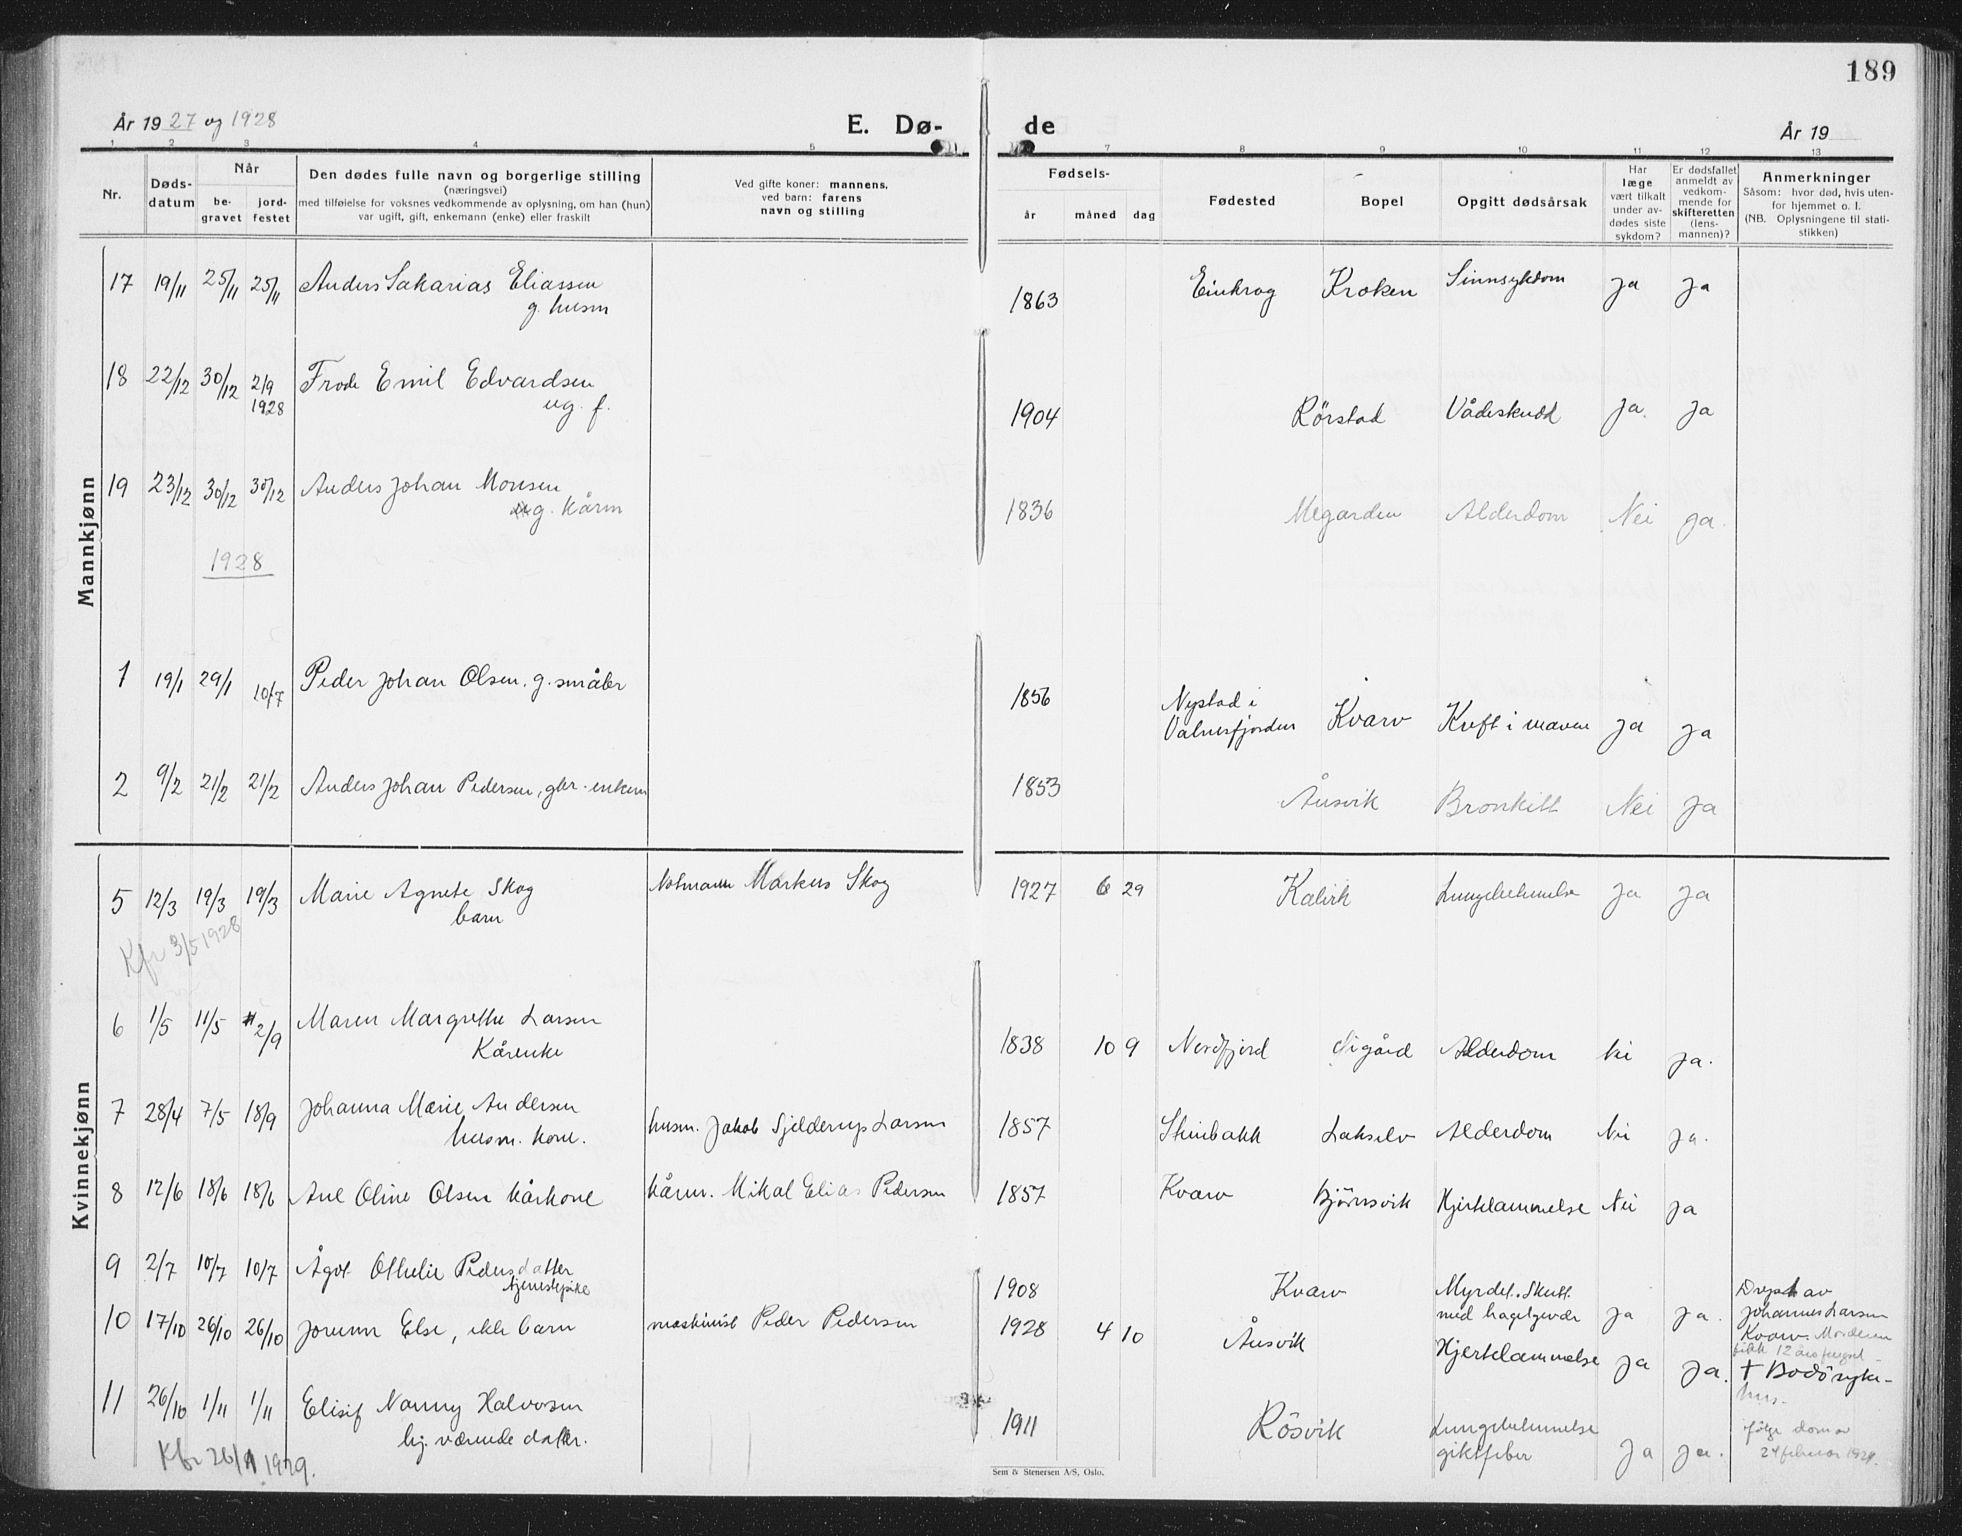 189
År 19 27 og 1928
E. Dø- de
År 19
1 2 3 4 5 7 8 9 10 11 12 13
Nr.
Døds-
datum
Når
be-
gravet
jord-
festet
Den dødes fulle navn og borgerlige stilling
(næringsvei)
med tilføielse for voksnes vedkommende av oplysning, om han (hun)
var ugift, gift, enkemann (enke) eller fraskilt
Ved gifte koner: mannens,
ved barn: farens
navn og stilling
Fødsels-
år måned dag
Fødested
Bopel
Opgitt dødsårsak
Har
læge
vært tilkalt
under av-
dødes siste
sykdom?
Er dødsfallet
anmeldt av
vedkom-
mende for
skifteretten
(lens-
mannen)?
Anmerkninger
Såsom: hvor død, hvis uten-
for hjemmet o. l.
(NB. Oplysningene til stati-
stikken)
Mannkjønn
17 19/11 25/11 25/11 Anders Sakarias Eliassen 1863 Kroken Sinnsykdom Ja Ja
g. husm
18 22/12 30/12 2/9 1928 Frode Emil Edvardsen 1904 Rörstad Vådeskudd Ja. Ja
ug. f.
19 23/12 30/12 30/12 Anders Johan Monsen 1836 Megarden Alderdom Nei Ja.
g. kårm
1928
1 19/1 29/1 10/7 Peder Johan Olsen. g. småbr 1856 Nystad i Valnesfjorden Kvarv Kreft i maven Ja Ja
2 9/2 21/2 21/2 Anders Johan Pedersen, gbr. enkem 1853 Åusvik Bronkitt Nei Ja
Kvinnekjønn
5 12/3 19/3 19/3 Marie Agnete Skog Markus Skog 1927 6 29 Kalvik Lungebetennelse Ja Ja
barn
Kfr 3/5 1928
6 1/5 11/5 2/9 Maren Margrethe Larsen 1838 10 9 Nordfjord Alderdom Nei Ja.
Kårenke
7 28/4 7/5 18/9 Johanna Marie Andersen husm. Jakob Gjelderup Larsen 1857 Lakselv Alderdom Nei Ja.
husm. kone.
8 12/6 18/6 18/6 Ane Oline Olsen kårkone kårm. Mikal Elias Pedersen 1857 Kvarv Björnsvik Hjertelammelse Nei Ja
9 2/7 10/7 10/7 Ågot Othelie Pedersdatter 1908 Kvarv Myrdet. Skutt
tjenestepike med hagelgevær Ja Ja.
Drept av
Johannes Larsen
Kvarv. Morderen
fikk 12 års fengsel
10 17/10 26/10 26/10 Jorunn Else, ekte barn maskinist Peder Pedersen 1928 4 10 Åusvik Hjertelammelse Ja Ja.
+ Bodö syke-
hus.
11 26/10 1/11 1/11 Elisif Nanny Halvorsen 1911 Rösvik Lungebetennelse
hj. værende datter. giktfeber Ja Ja.
følge dom av
24 februar 1929.
Kfr 26/1 1929.
Sem & Stenersen A/S, Oslo.